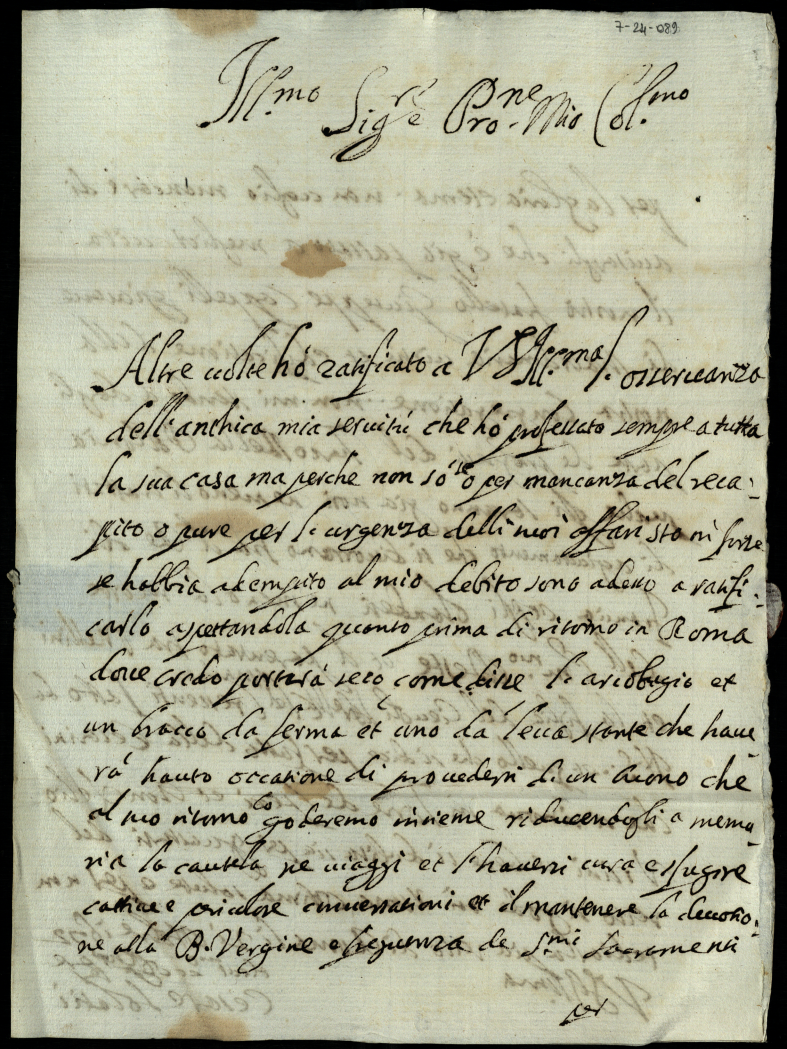 7-24-089
Ill.mo Sig.re Pro.ne Mio Col.mo
Altre volte hò ratificato a VS Ill.ma l. osservanza
dell'anthica mia servitù che hò professato sempre a tutta
la sua casa ma perche non sò se o per mancanza del reca:
pito o pure per l. urgenza delli suoi affari sto in forze
se habbia adempito al mio debito sono adesso a ratifi:
carlo aspettandola quanto prima di ritorno in Roma
dove credo porterà seco come disse l. arcobugio et
un bracco da ferma et uno da leva stante che have
rà hauto occatione di provedersi d. un buono che
al suo ritorno lo goderemo insieme riducendogli a memo
ria la cautela ne viaggi et l'haversi cura e sfugire
cattive e periculose conversationi et il mantenere la devotio:
ne alla B. Vergine e frequenza de S.mi Sacramenti
per